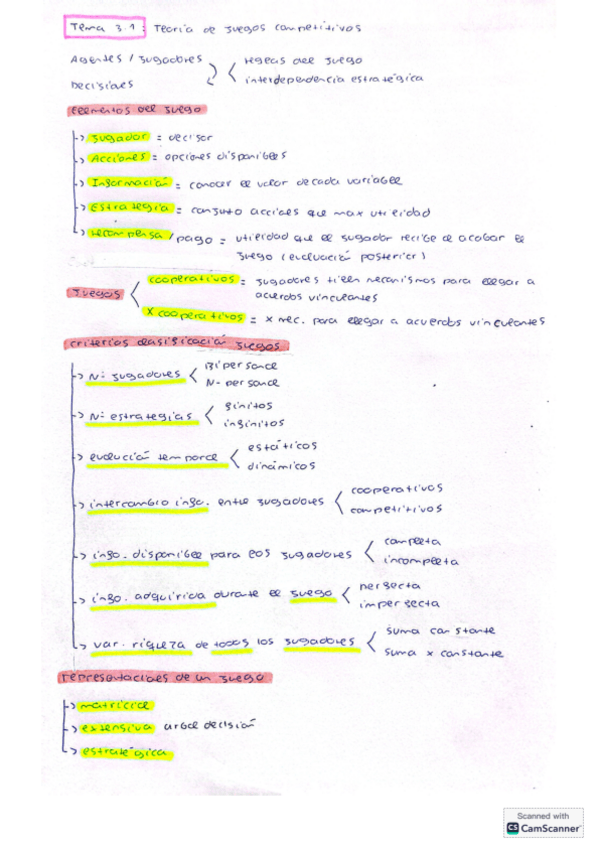 Tema 3.1: Teoría de juegos competitivos
Agentes / jugadores
Decisiones
reglas del juego
interdependencia estratégica
elementos del juego
-> jugador = decisor
-> Acciones = opciones disponibles
-> Información = conocer el valor de cada variable
-> Estrategia = conjunto acciones que max utilidad
-> recompensa / pago = utilidad que el jugador recibe al acabar el
juego (evaluación posterior)
juegos
cooperativos = jugadores tienen mecanismos para llegar a
acuerdos vinculantes
x cooperativos = x mec. para llegar a acuerdos vinculantes
criterios clasificación juegos
-> Nº jugadores < Bipersonal
N-personal
-> Nº estrategias < finitos
infinitos
-> evolución temporal < estáticos
dinámicos
-> intercambio info. entre jugadores < cooperativos
competitivos
-> info. disponible para los jugadores < completa
incompleta
-> info. adquirida durante el juego < perfecta
imperfecta
-> var. riqueza de todos los jugadores < suma constante
suma x constante
representaciones de un juego
-> matricial
-> extensiva arbol decisión
-> estratégica
Scanned with
CS CamScanner